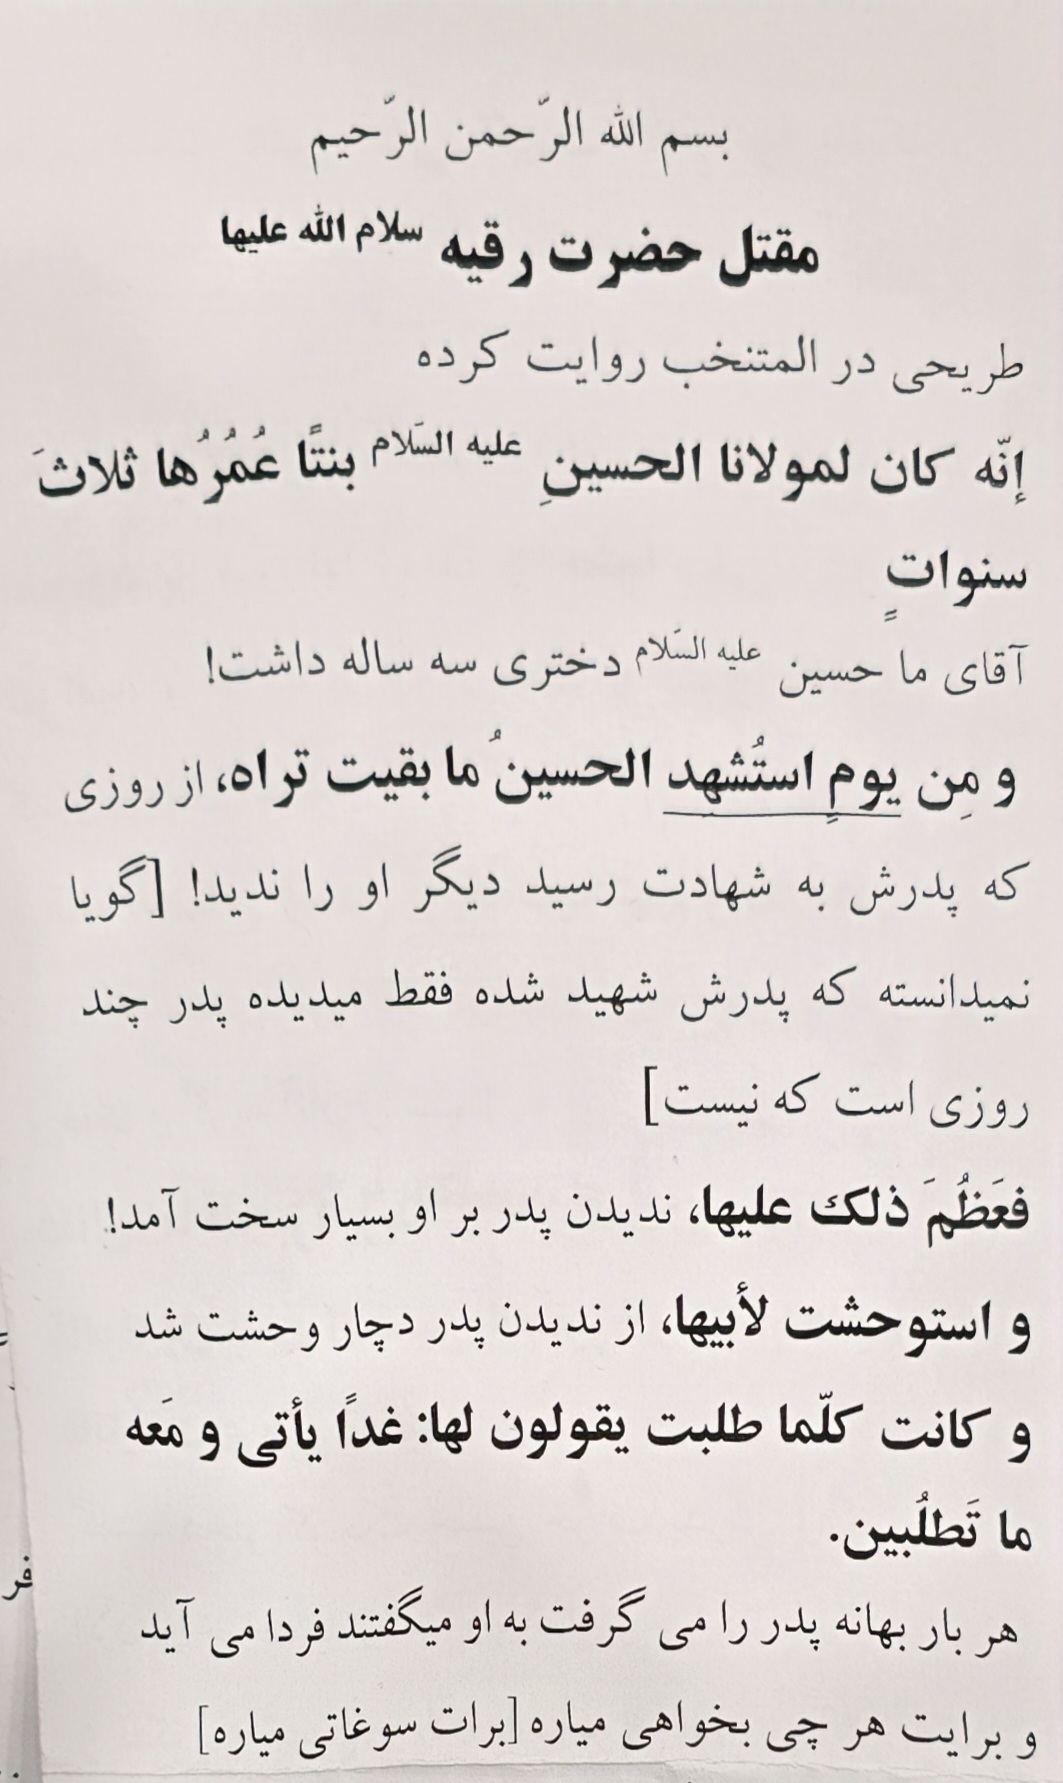 بسم الله الرّحمن الرّحیم
مقتل حضرت رقیه سلام الله علیها
طریحی در المتنخب روایت کرده
إنّه كان لمولانا الحسينِ عليه السّلام بنتًا عُمُرُها ثلاثَ
سنواتٍ
آقای ما حسین علیه السّلام دختری سه ساله داشت!
و مِن يومٍ استُشهد الحسينُ ما بقيت تراه، از روزی
که پدرش به شهادت رسید دیگر او را ندید! [گویا
نمیدانسته که پدرش شهید شده فقط میدیده پدر چند
روزی است که نیست]
فعَظُمَ ذلك عليها، ندیدن پدر بر او بسیار سخت آمد!
و استوحشت لأبيها، از ندیدن پدر دچار وحشت شد
و كانت كلّما طلبت يقولون لها: غدًا يأتى و مَعه
ما تَطلُبين.
هر بار بهانه پدر را می گرفت به او میگفتند فردا می آید
و برایت هر چی بخواهی میاره [برات سوغاتی میاره]
فر